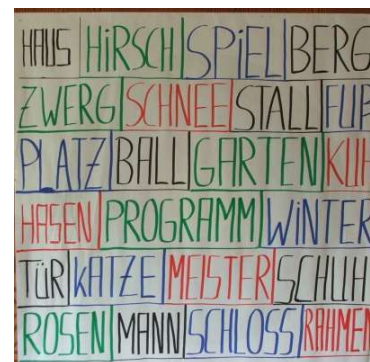 HAUS HiRSCH SPiEL BERG
ZWERG SCHNEE STALL FUß
PLATZ BALL GARTEN KUH
HASEN PROGRAMM WiNTER
TÜR KATZE MEISTER SCHUH
ROSEN MANN SCHLOSS RAHMEN